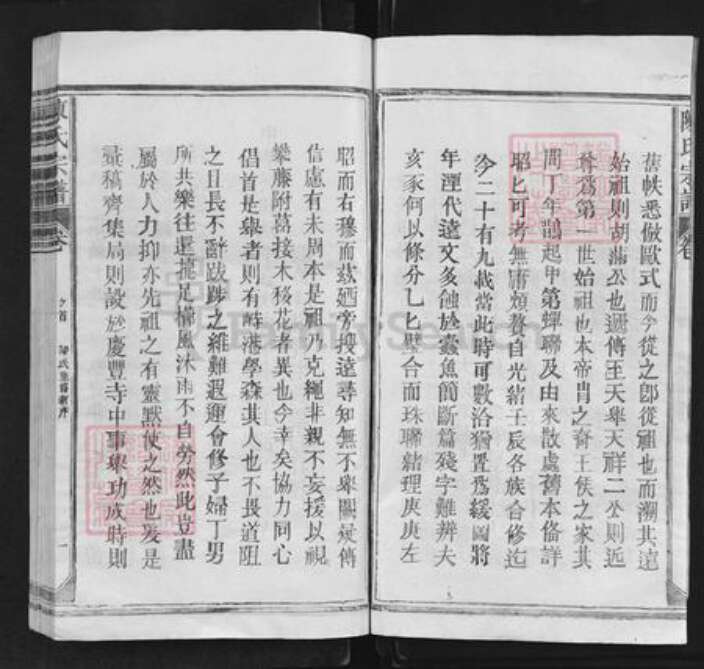 舊帙悉倣歐式而今從之卽從祖也而溯其遠
始祖則胡滿公也遞傳至天擧天祥二公則近
尊爲第一世始祖也本帝胄之裔王侯之家其
間丁年鵲起甲第蟬聯及由來散處舊本俻詳
昭匕可考無庸煩贅自光緒壬辰各族合修迄
今二十有九載當此時可數洽猶置爲緩圖將
年湮代遠文多蝕於蠹魚簡斷篇殘字難辨夫
亥豕何以條分匕匕璧合而珠聯緒理庚庚左
昭而右穆而茲廼旁搜遠尋知無不擧闕疑傳
信慮有未周本是祖乃克繩非親不妄援以視
攀藤附葛接木移花者異也今幸矣協力同心
倡首是擧者則有時港學森其人也不畏道阻
之且長不辭跋踄之維難遐邇會修子婦丁男
所共樂往還捷足櫛風沐雨不自勞然此豈盡
屬於人力抑亦先祖之有靈默使之然也爰是
彙稿齊集局則設於慶豐寺中事擧功成時則
陳氏宗譜 卷
陳氏宗譜 卷
之首
陳氏重修新序
一
FamilySearch